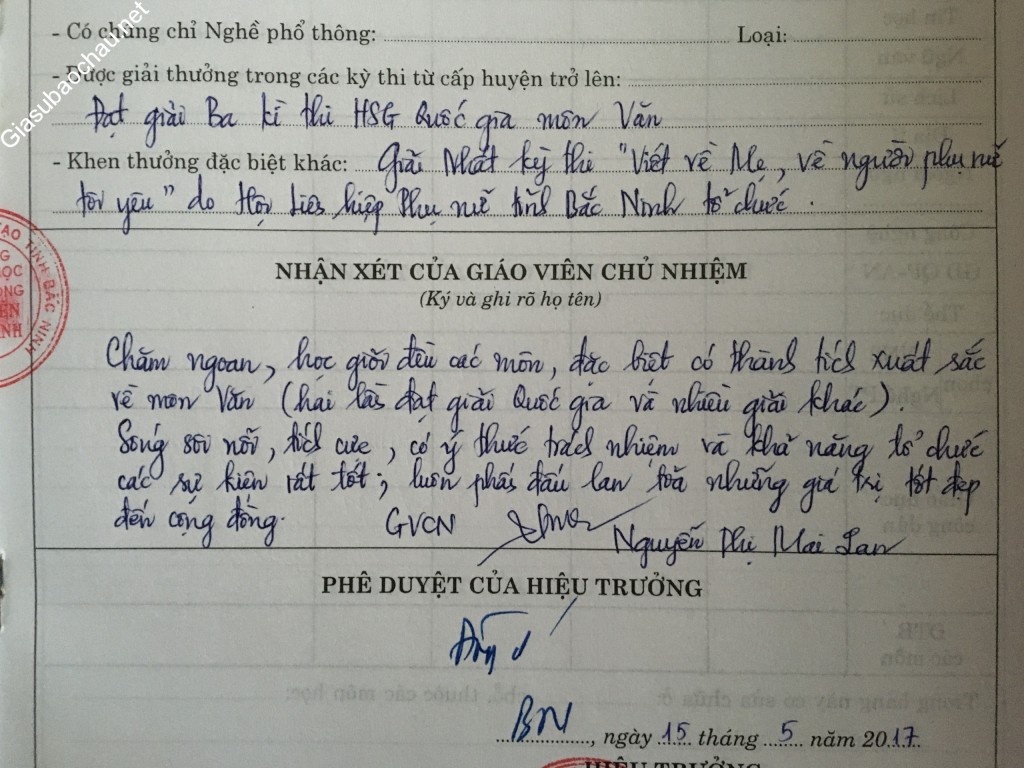 Giasubaochau.net
- Có chứng chỉ Nghề phổ thông: Loại:
- Được giải thưởng trong các kỳ thi từ cấp huyện trở lên:
Đạt giải Ba kì thi HSG Quốc gia môn Văn
- Khen thưởng đặc biệt khác: Giải Nhất kỳ thi "Viết về Mẹ, về người phụ nữ
tôi yêu" do Hội Liên hiệp Phụ nữ tỉnh Bắc Ninh tổ chức.
TỈNH BẮC NINH
NHẬN XÉT CỦA GIÁO VIÊN CHỦ NHIỆM
(Ký và ghi rõ họ tên)
Chăm ngoan, học giỏi đều các môn, đặc biệt có thành tích xuất sắc
về môn Văn (hai lần đạt giải Quốc gia và nhiều giải khác).
Sống sôi nổi, tích cực, có ý thức trách nhiệm và khả năng tổ chức
các sự kiện rất tốt; luôn phấn đấu lan toả những giá trị tốt đẹp
đến cộng đồng.
GVCN Nguyễn Thị Mai Lan
PHÊ DUYỆT CỦA HIỆU TRƯỞNG
Đồng ý
BN, ngày 15 tháng 5 năm 2017
HIỆU TRƯỞNG